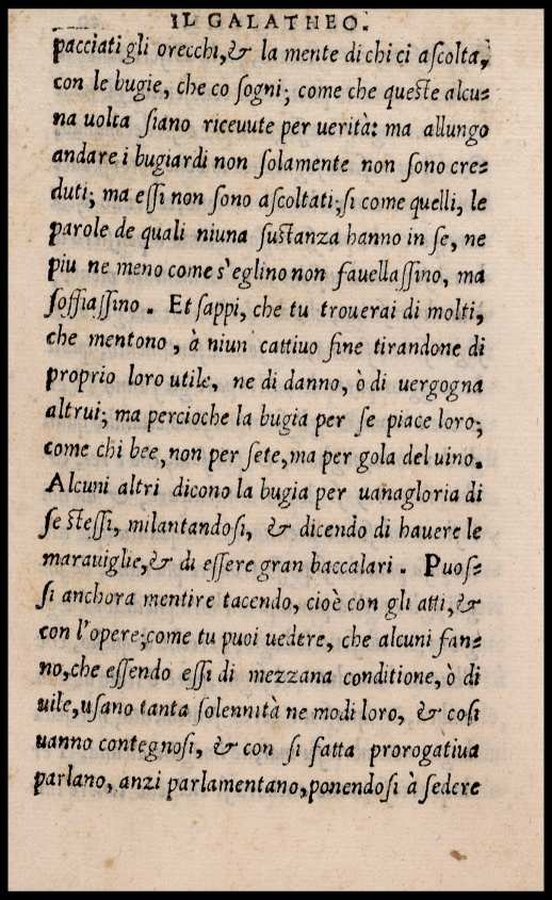 IL GALATHEO.
pacciati gli orecchi, & la mente di chi ci ascolta,
con le bugie, che co sogni; come che queste alcu-
na uolta siano riceuute per uerità: ma allungo
andare i bugiardi non solamente non sono cre-
duti; ma essi non sono ascoltati; si come quelli, le
parole de quali niuna sustanza hanno in se, ne
piu ne meno come s'eglino non fauellassino, ma
soffiassino. Et sappi, che tu trouerai di molti,
che mentono, à niun cattiuo fine tirandone di
proprio loro utile, ne di danno, ò di uergogna
altrui; ma percioche la bugia per se piace loro;
come chi bee, non per sete, ma per gola del uino.
Alcuni altri dicono la bugia per uanagloria di
se stessi, milantandosi, & dicendo di hauere le
marauiglie, & di essere gran baccalari. Puos-
si anchora mentire tacendo, cioè con gli atti, &
con l'opere; come tu puoi uedere, che alcuni fan-
no, che essendo essi di mezzana conditione, ò di
uile, usano tanta solennità ne modi loro, & cosi
uanno contegnosi, & con si fatta prorogatiua
parlano, anzi parlamentano, ponendosi à sedere